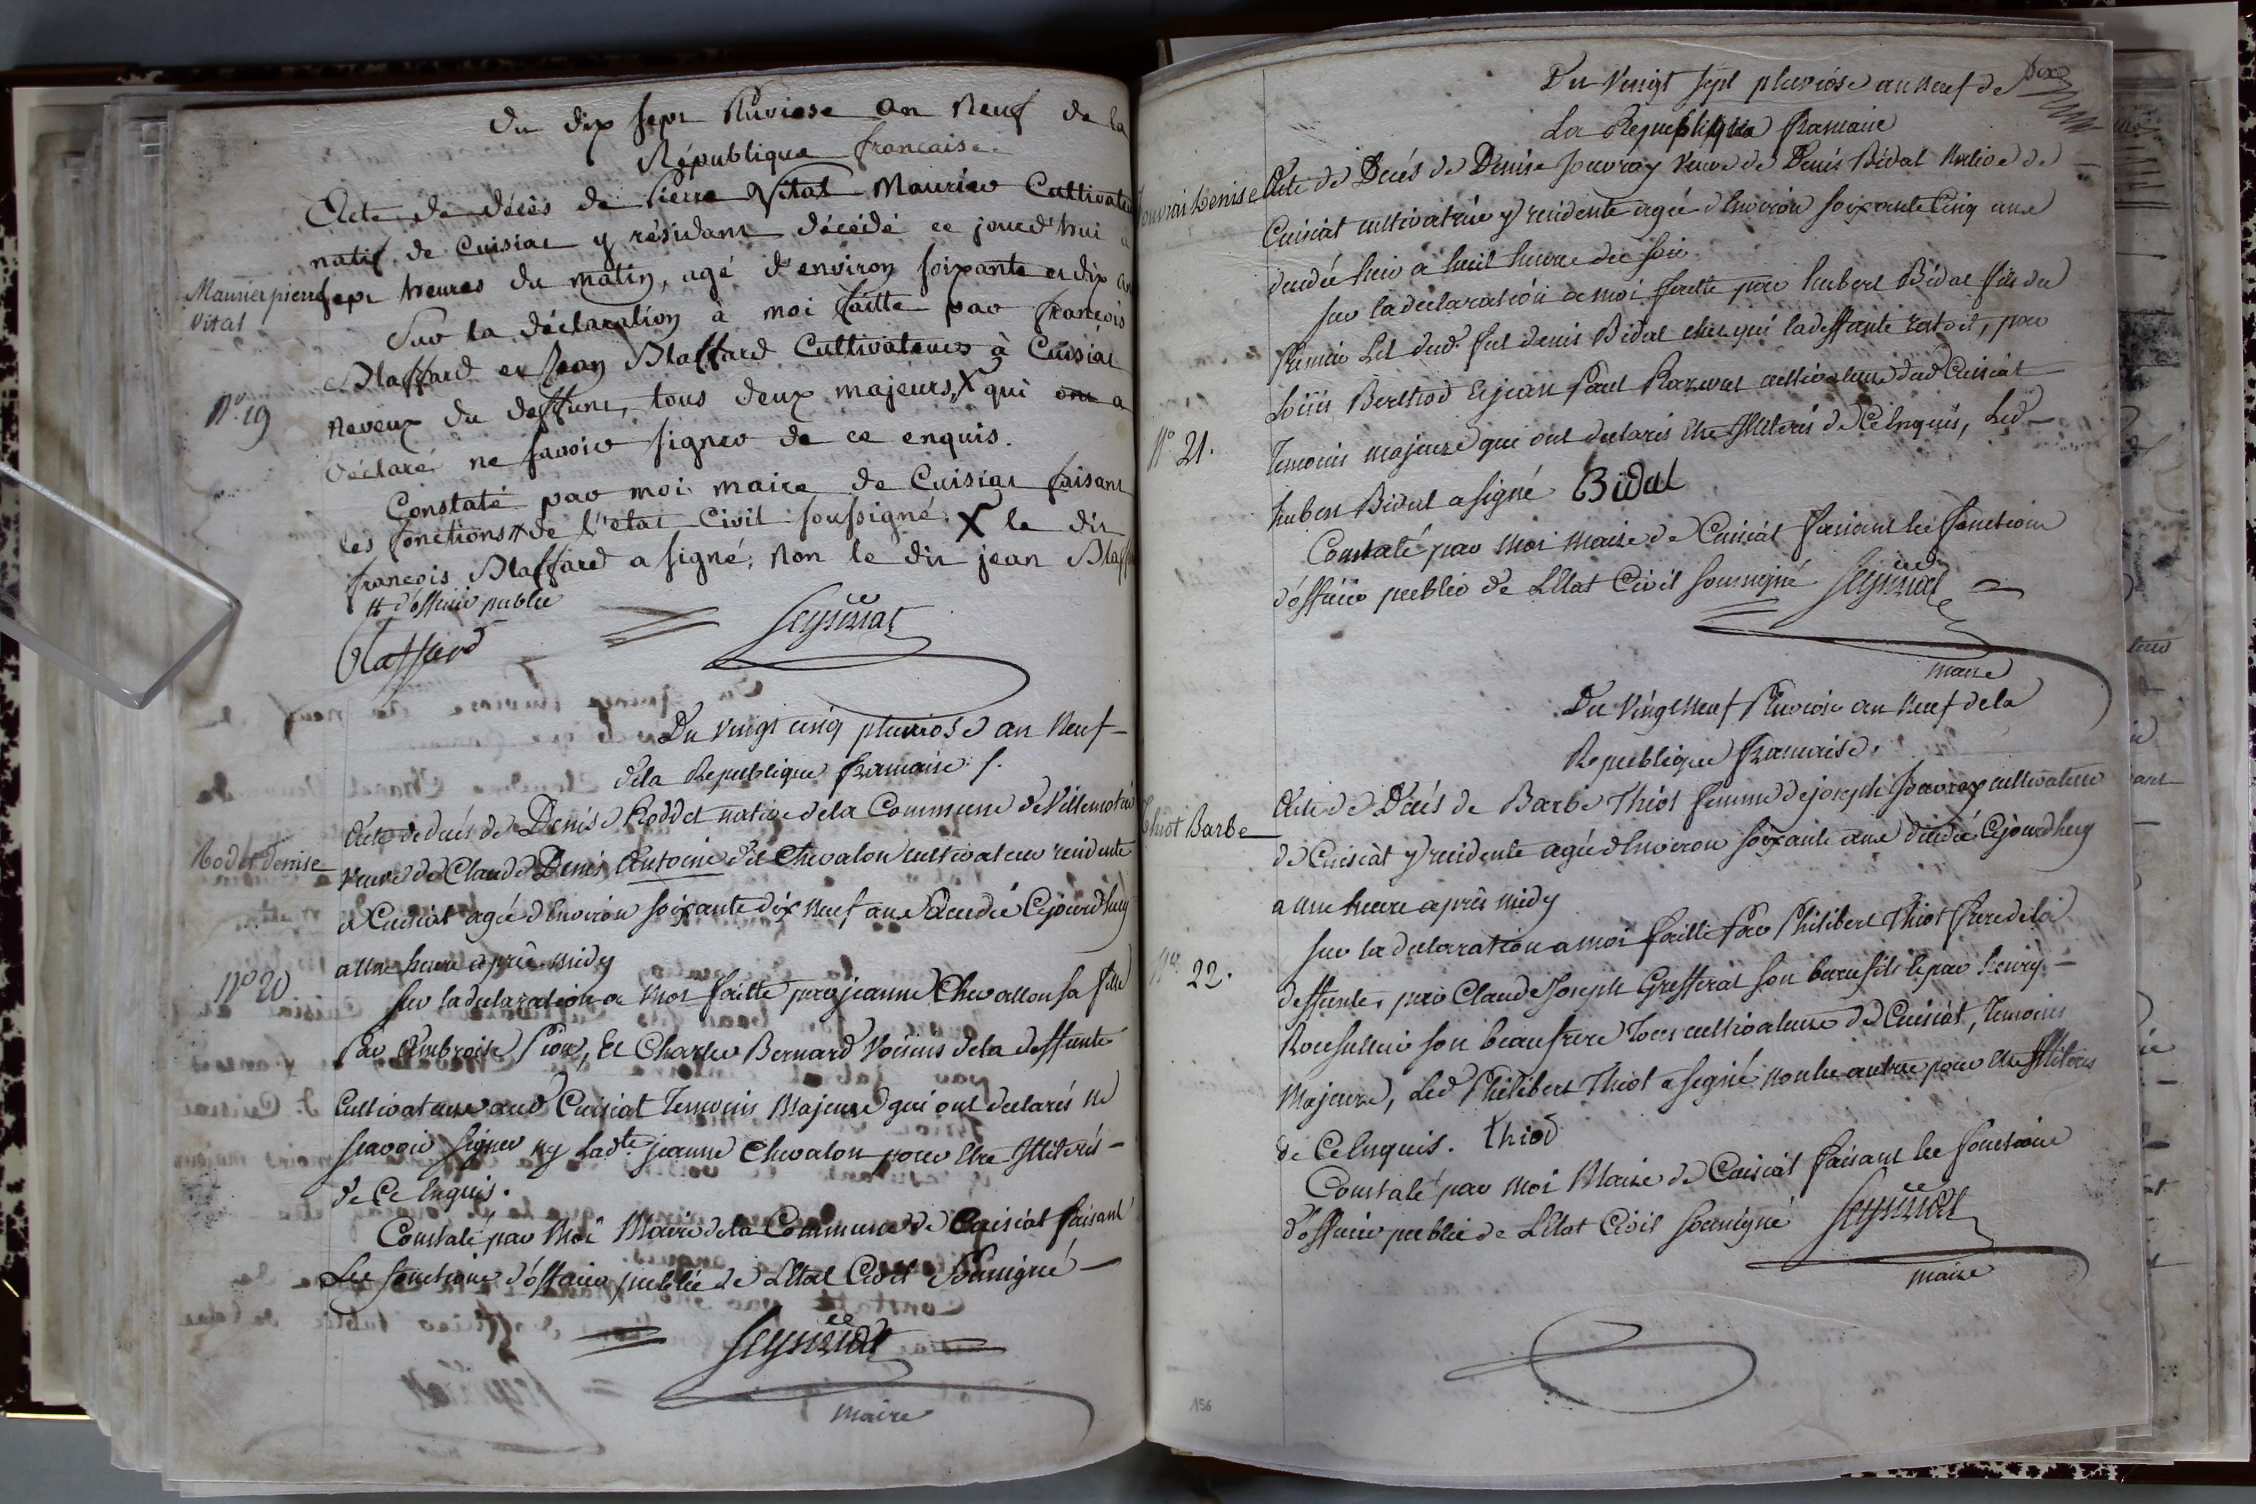 du dix sept Pluviose an neuf de la
République francaise.
Acte de décès de Pierre Vital Maurier Cultivateur
natif de Cuisiat y résidant décédé ce jourd'hui a
sept heures du matin, agé d'environ soixante et dix an
Sur la déclaration à moi faitte par francois
Blaffard et Jean Blaffard Cultivateurs à Cuisiat
neveux du deffunt, tous deux majeurs, X qui ont a
déclaré ne savoir signer de ce enquis.
Constaté par moi maire de Cuisiat faisant
les fonctions # de l'etat Civil soussigné. X le dit
francois Blaffard a signé, non le dit jean Blaff
# d'officier public
Blaffard
Maurier pierre
Vital
N° 19
Du vingt cinq pluviose an Neuf
de la Republique francaise.
Acte de décés de Denise Roddet native de la Commune de Villemotier
veuve de Claude Denis Antoine dit Chevalon cultivateur residente
a Cuisiat agée d'Environ soixante dix neuf ans decedée Cejourdhuy
a une heure aprés midy
sur la declaration a moi faitte par jeanne Chevallon sa fille
Par Ambroise Pion, Et Charles Bernard Voisins de la deffunte
Cultivateurs aud Cuisiat Temoins Majeurs qui ont declarés ne
scavoir signer ny Ladte jeanne Chevalon pour Etre Illiterés
de Ce Enquis.
Constaté par Moi Maire de la Commune de Cuisiat faisant
Les fonctions d'officier publie de L'Etat Civil Soussigné
maire
Rodet denise
N° 20
Du Vingt sept pluviose an neuf de
La Republique francaise
Acte de Decés de Denise Jouvray veuve de Denis Bidat Native de
Cuisiat cultivatrice y residente agée d'Environ soixante Cinq ans
decedée hier a huit heures du soir.
sur la declaration a moi faitte par hubert Bidat fils du
Premier Lit dud. fut denis Bidat chez qui la deffunte restoit, par
Louis Berthod Et jean Paul Razurel cultivateurs dud Cuisiat
Temoins majeurs qui ont declarés Etre Illiterés de Ce Enquis, Led
hubert Bidat a signé Bidat
Constaté par moi maire de Cuisiat faisant les fonctions
d'officier publie de L'Etat Civil soussigné
maire
Jouvrai Denise
N° 21.
Du Vingt Neuf Pluviose an neuf de la
Republique francaise.
Acte de Décés de Barbe Thiot femme de joseph Jouvray cultivateur
de Cuisiat y residente agée d'Environ soixante ans decedée Cejourdhuy
a une heure aprés midy
sur la declaration a moi faitte Par Philibert Thiot frere de la
deffunte, par Claude Joseph Grefferat son beau fils Et par henry
son beaufrere Tous cultivateurs de Cuisiat, Temoins
Majeurs, Led Philibert Thiot a signé non les autres pour Etre Illiterés
de Ce Enquis. thiod
Constaté par moi Maire de Cuisiat faisant les fonctions
d'officier publie de L'Etat Civil soussigné
maire
Thiot Barbe
N° 22.
156